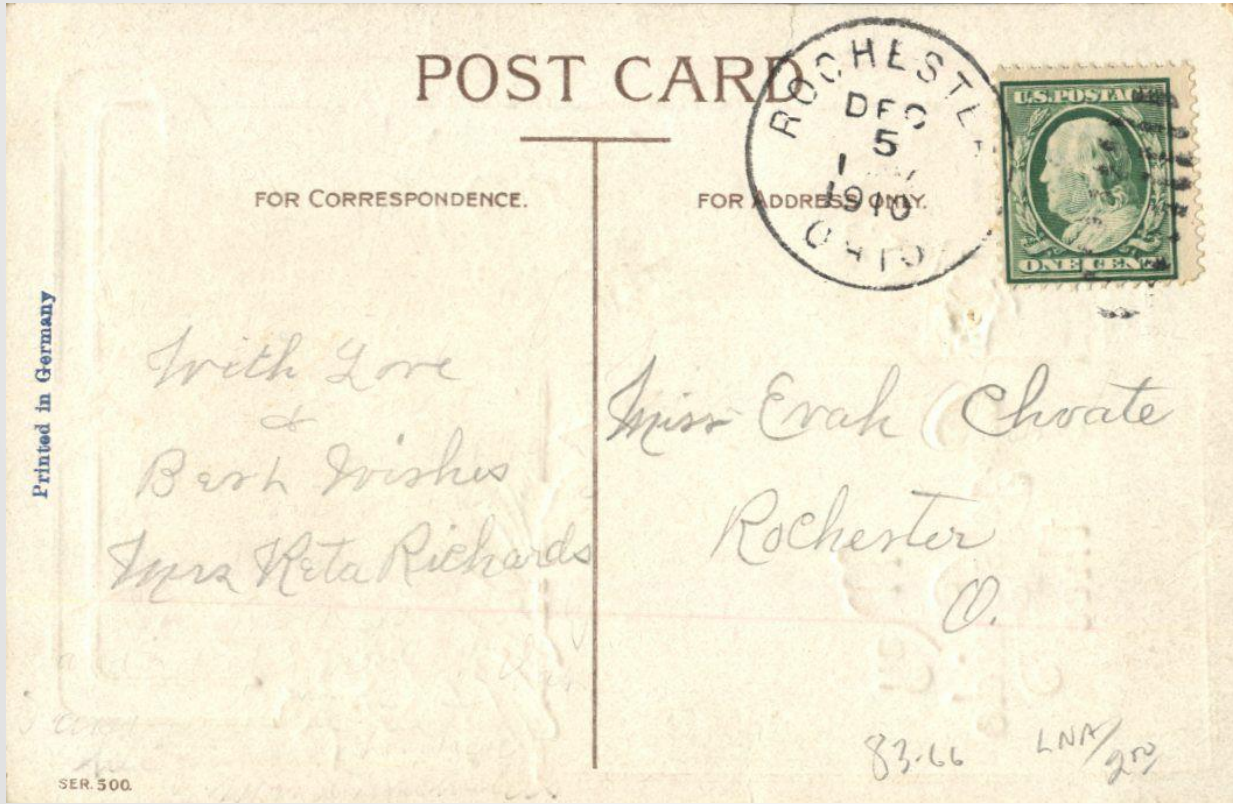 POST CARD
ROCHESTER
DEC
5
1910
OHIO
U.S. POSTAGE
ONE CENT
FOR CORRESPONDENCE.
FOR ADDRESS ONLY.
Printed in Germany
With Love
&
Best Wishes
Mrs Reta Richards
Miss Evah Choate
Rochester
O.
83-66
LNA/200
SER. 500.